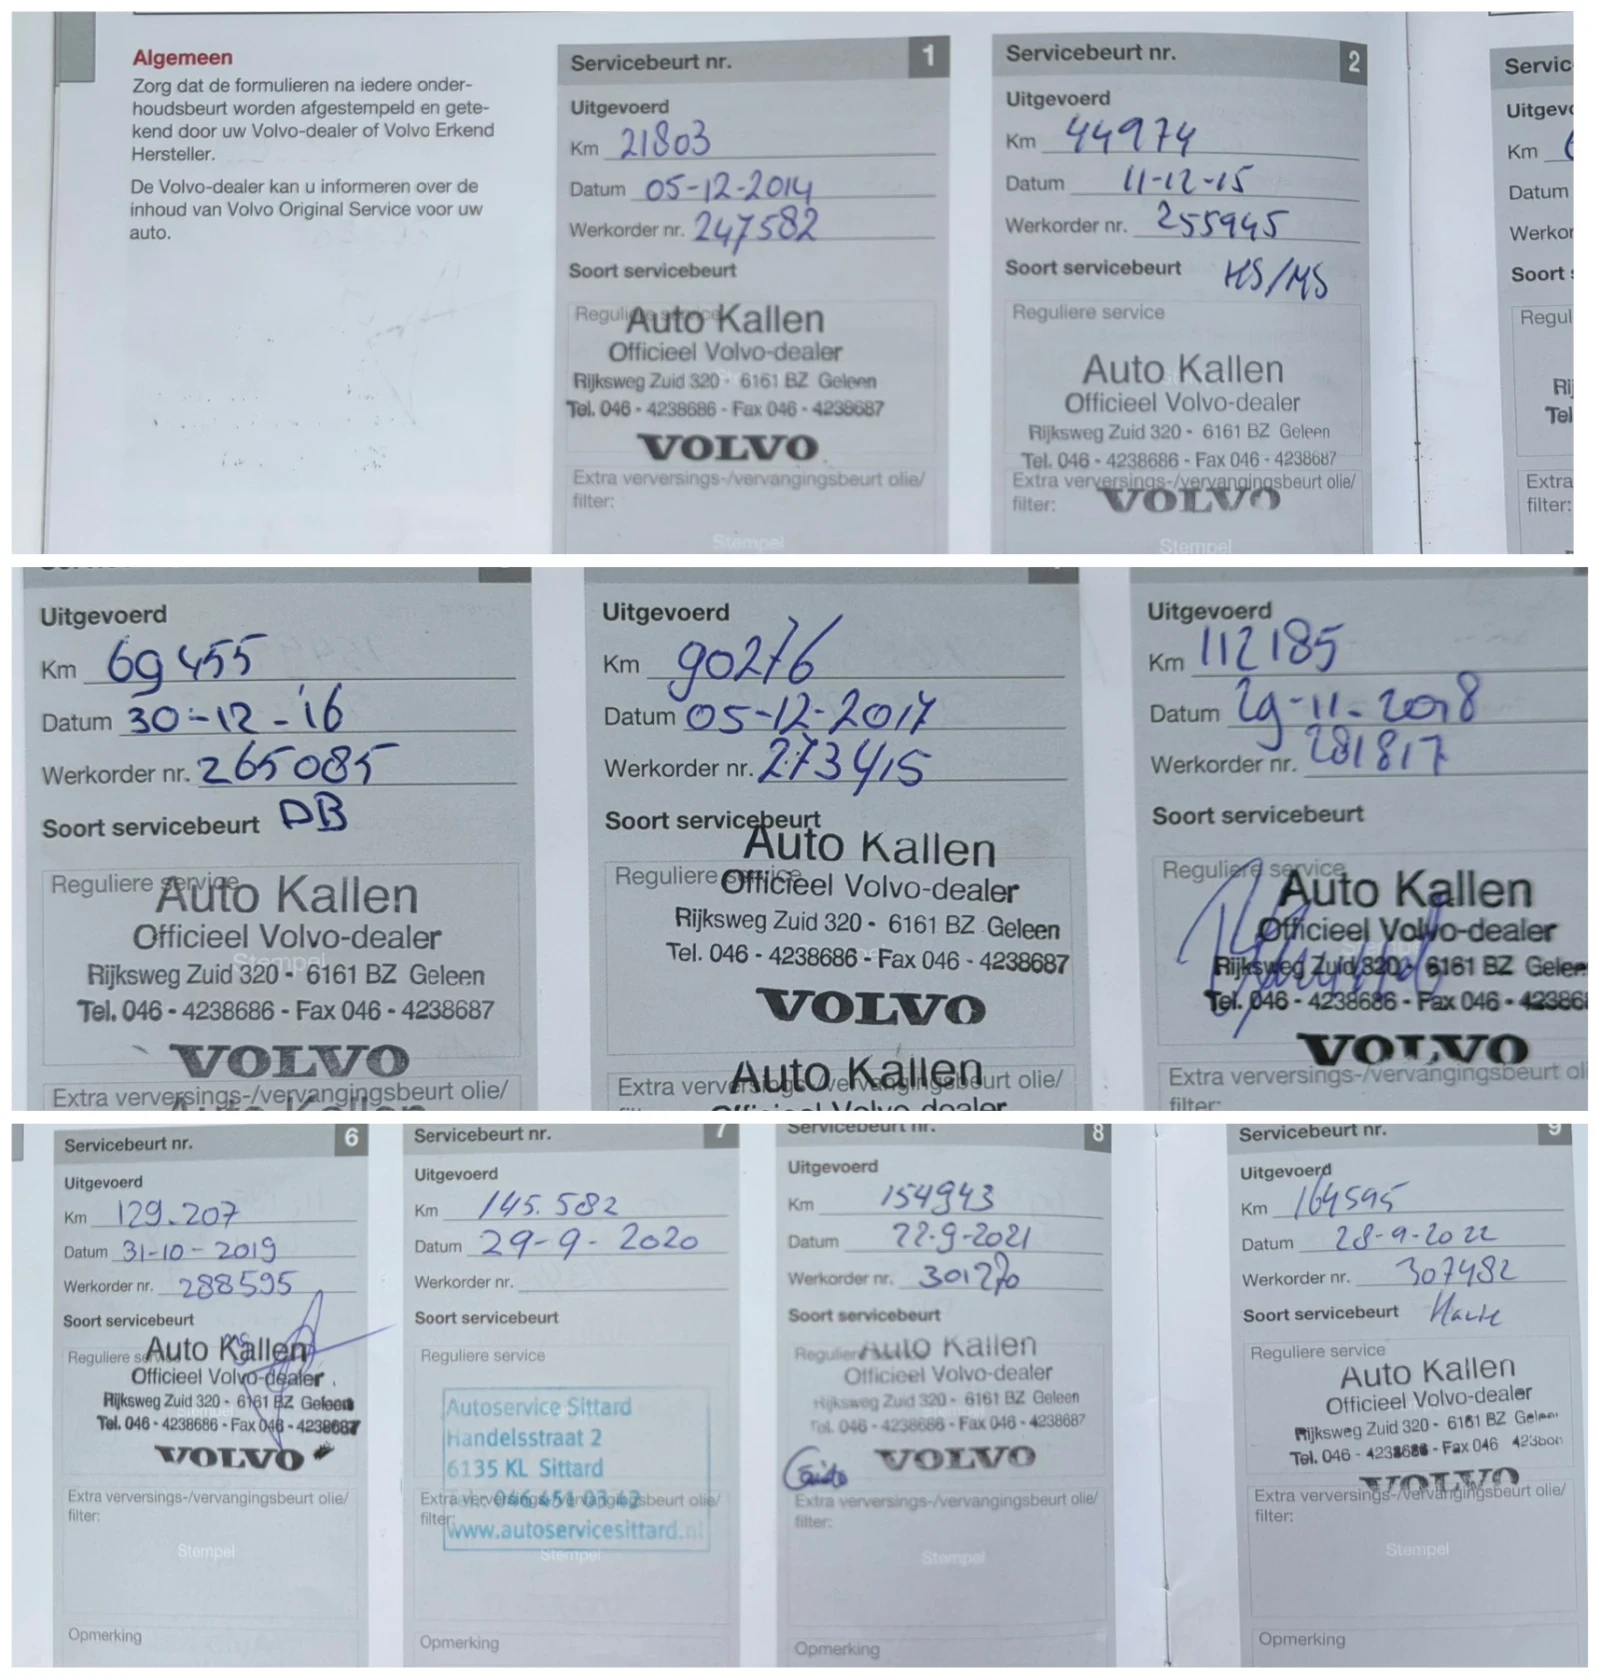 Algemeen
Zorg dat de formulieren na iedere onder-
houdsbeurt worden afgestempeld en gete-
kend door uw Volvo-dealer of Volvo Erkend
Hersteller.
De Volvo-dealer kan u informeren over de
inhoud van Volvo Original Service voor uw
auto.
Servicebeurt nr. 1
Uitgevoerd
Km 21803
Datum 05-12-2014
Werkorder nr. 247582
Soort servicebeurt
Reguliere service
Auto Kallen
Officieel Volvo-dealer
Rijksweg Zuid 320 - 6161 BZ Geleen
Tel. 046 - 4238686 - Fax 046 - 4238687
VOLVO
Extra verversings-/vervangingsbeurt olie/
filter:
Stempel
Servicebeurt nr. 2
Uitgevoerd
Km 44974
Datum 11-12-15
Werkorder nr. 255945
Soort servicebeurt HS/MS
Reguliere service
Auto Kallen
Officieel Volvo-dealer
Rijksweg Zuid 320 - 6161 BZ Geleen
Tel. 046 - 4238686 - Fax 046 - 4238687
Extra verversings-/vervangingsbeurt olie/
filter:
VOLVO
Stempel
Servic
Uitgevo
Km
Datum
Werkor
Soort
Regul
Rij
Tel
Extra
filter:
Uitgevoerd
Km 69455
Datum 30-12-16
Werkorder nr. 265085
Soort servicebeurt DB
Reguliere service
Auto Kallen
Officieel Volvo-dealer
Stempel
Rijksweg Zuid 320 - 6161 BZ Geleen
Tel. 046 - 4238686 - Fax 046 - 4238687
VOLVO
Extra verversings-/vervangingsbeurt olie/
Auto Kallen
Uitgevoerd
Km 90276
Datum 05-12-2017
Werkorder nr. 273415
Soort servicebeurt
Auto Kallen
Reguliere service
Officieel Volvo-dealer
Rijksweg Zuid 320 - 6161 BZ Geleen
Tel. 046 - 4238686 - Fax 046 - 4238687
VOLVO
Auto Kallen
Extra verversings-/vervangingsbeurt olie/
Officieel Volvo-dealer
Uitgevoerd
Km 112185
Datum 29-11-2018
Werkorder nr. 281817
Soort servicebeurt
Reguliere service
Auto Kallen
Officieel Volvo-dealer
Rijksweg Zuid 320 - 6161 BZ Gelee
Tel. 046 - 4238686 - Fax 046 - 42386
VOLVO
Extra verversings-/vervangingsbeurt ol
filter:
Servicebeurt nr. 6
Uitgevoerd
Km 129.207
Datum 31-10-2019
Werkorder nr. 288595
Soort servicebeurt
Auto Kallen
Reguliere service
Officieel Volvo-dealer
Rijksweg Zuid 320 - 6161 BZ Geleen
Tel. 046 - 4238686 - Fax 046 - 4238687
VOLVO
Extra verversings-/vervangingsbeurt olie/
filter:
Stempel
Opmerking
Servicebeurt nr. 7
Uitgevoerd
Km 145.582
Datum 29-9-2020
Werkorder nr.
Soort servicebeurt
Reguliere service
Autoservice Sittard
Handelsstraat 2
6135 KL Sittard
Extra verversings-/vervangingsbeurt olie/
filter:
www.autoservicesittard.nl
Stempel
Opmerking
Servicebeurt nr. 8
Uitgevoerd
Km 154943
Datum 22-9-2021
Werkorder nr. 301270
Soort servicebeurt
Reguliere
Auto Kallen
Officieel Volvo-dealer
Rijksweg Zuid 320 - 6161 BZ Geleen
Tel. 046 - 4238686 - Fax 046 - 4238687
VOLVO
Extra verversings-/vervangingsbeurt olie/
filter:
Stempel
Opmerking
Servicebeurt nr. 9
Uitgevoerd
Km 164595
Datum 28-9-2022
Werkorder nr. 307482
Soort servicebeurt
Reguliere service
Auto Kallen
Officieel Volvo-dealer
Rijksweg Zuid 320 - 6161 BZ Geleen
Tel. 046 - 4238686 - Fax 046
VOLVO
Extra verversings-/vervangingsbeurt olie/
filter:
Stempel
Opmerking